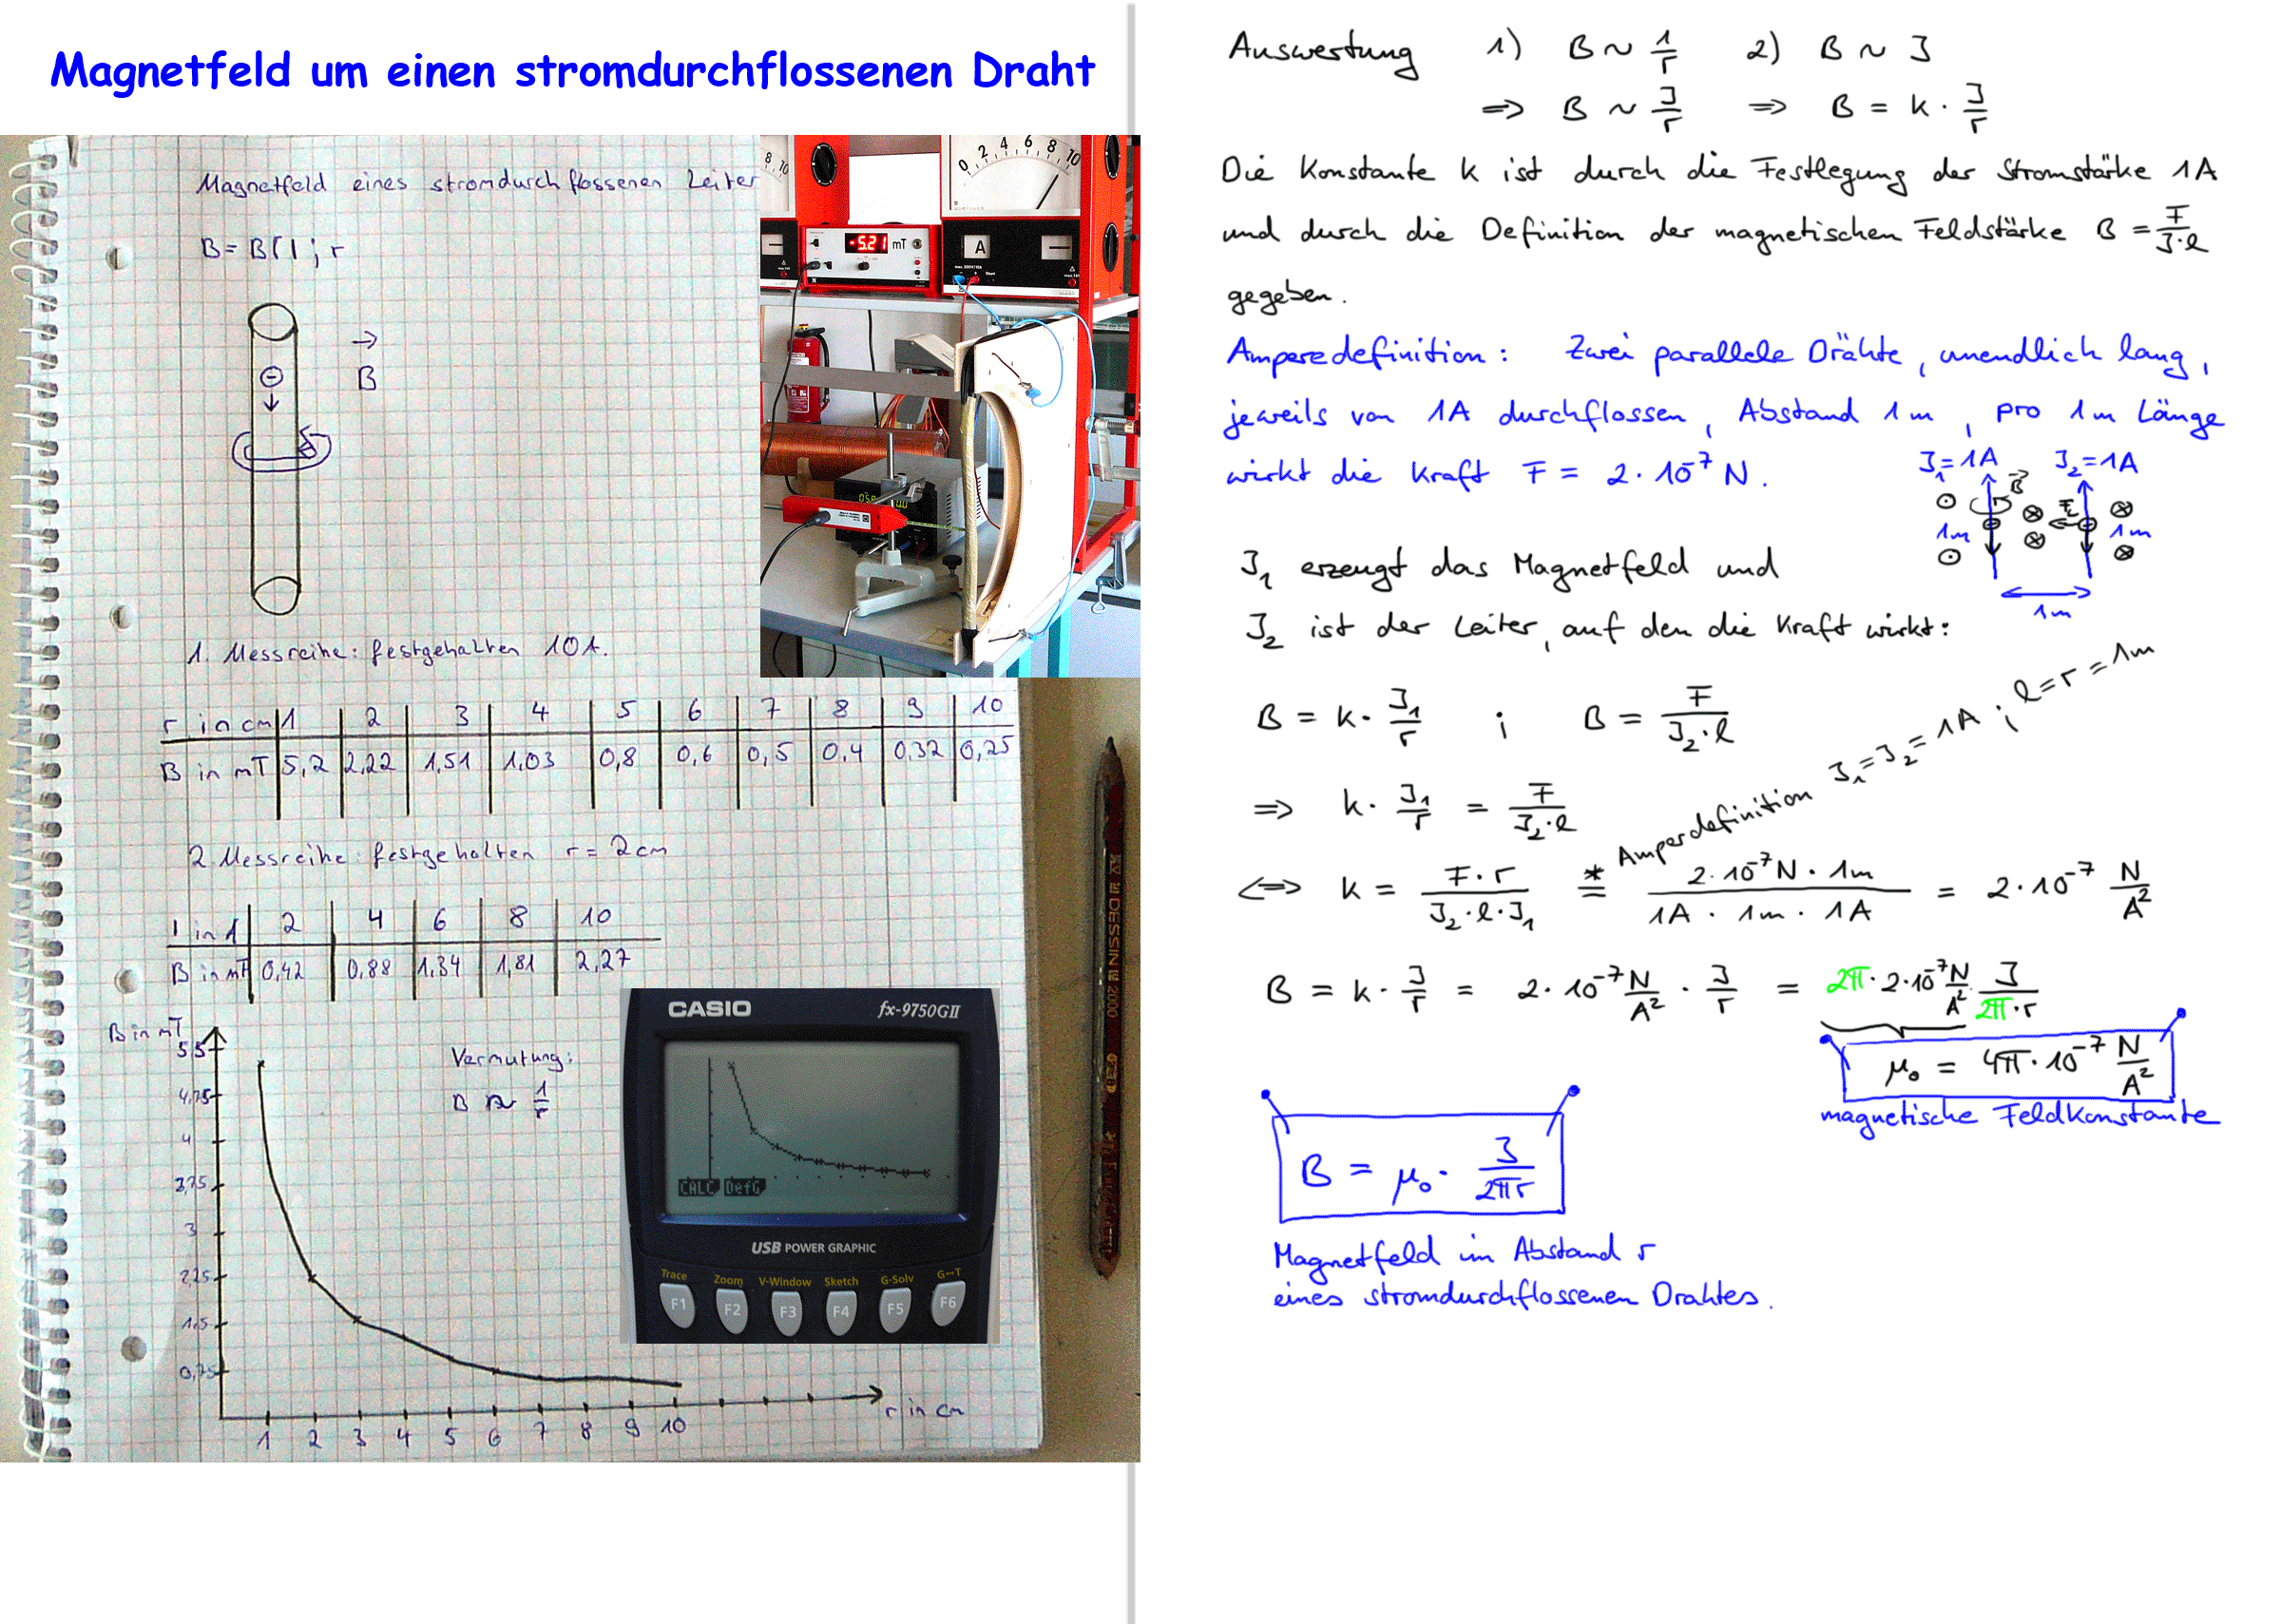 Magnetfeld um einen stromdurchflossenen Draht
Magnetfeld eines stromdurchflossenen Leiter
B = B(I ; r
⊖
→
B
1. Messreihe: festgehalten 10A.
r in cm 1 2 3 4 5 6 7 8 9 10
B in mT 5,2 2,22 1,51 1,03 0,8 0,6 0,5 0,4 0,32 0,25
2 Messreihe: festgehalten r = 2cm
I in A 2 4 6 8 10
B in mT 0,42 0,88 1,34 1,81 2,27
B in mT
5,5
4,75
4
3,75
3
2,25
1,5
0,75
1 2 3 4 5 6 7 8 9 10
r in cm
Vermutung:
B ~ 1/r
8 10
0 2 4 6 8 10
-5.21 mT
A
CASIO fx-9750GII
CALC DefG
USB POWER GRAPHIC
Trace Zoom V-Window Sketch G-Solv G↔T
F1 F2 F3 F4 F5 F6
DESSIN 2000
Auswertung 1) B ~ 1/r 2) B ~ I
⇒ B ~ I/r ⇒ B = k · I/r
Die Konstante k ist durch die Festlegung der Stromstärke 1A
und durch die Definition der magnetischen Feldstärke B = F/(I·l)
gegeben.
Amperedefinition: Zwei parallele Drähte, unendlich lang,
jeweils von 1A durchflossen, Abstand 1m, pro 1m Länge
wirkt die Kraft F = 2·10⁻⁷ N.
I₁=1A I₂=1A
B
F₂
1m 1m
1m
I₁ erzeugt das Magnetfeld und
I₂ ist der Leiter, auf den die Kraft wirkt:
B = k · I₁/r ; B = F/(I₂·l)
⇒ k · I₁/r = F/(I₂·l)
* Amperdefinition I₁=I₂=1A ; l=r=1m
⇔ k = (F·r)/(I₂·l·I₁) =* (2·10⁻⁷N·1m)/(1A·1m·1A) = 2·10⁻⁷ N/A²
B = k · I/r = 2·10⁻⁷ N/A² · I/r = 2π·2·10⁻⁷ N/A² · I/(2π·r)
μ₀ = 4π·10⁻⁷ N/A²
magnetische Feldkonstante
B = μ₀ · I/(2πr)
Magnetfeld im Abstand r
eines stromdurchflossenen Drahtes.